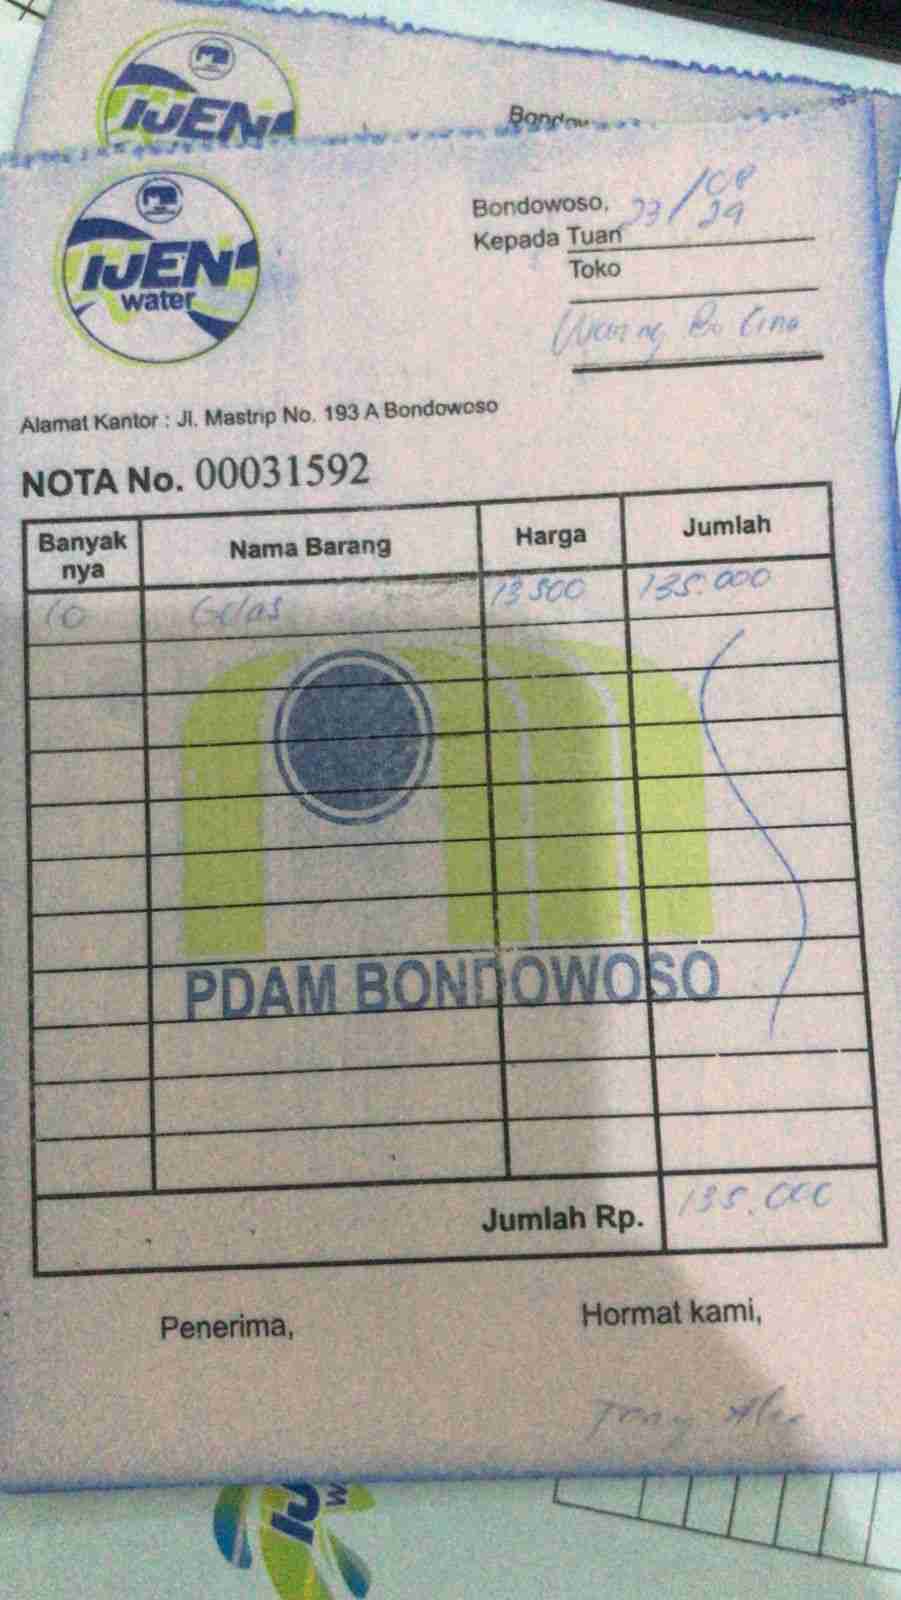 IJEN
Bondow
IJEN
water
Bondowoso, 23/08 24
Kepada Tuan
Toko
Warung Bu Tina
Alamat Kantor : Jl. Mastrip No. 193 A Bondowoso
NOTA No. 00031592
Banyak nya Nama Barang Harga Jumlah
10 Gelas 13500 135.000
PDAM BONDOWOSO
Jumlah Rp. 135.000
Penerima, Hormat kami,
IJEN